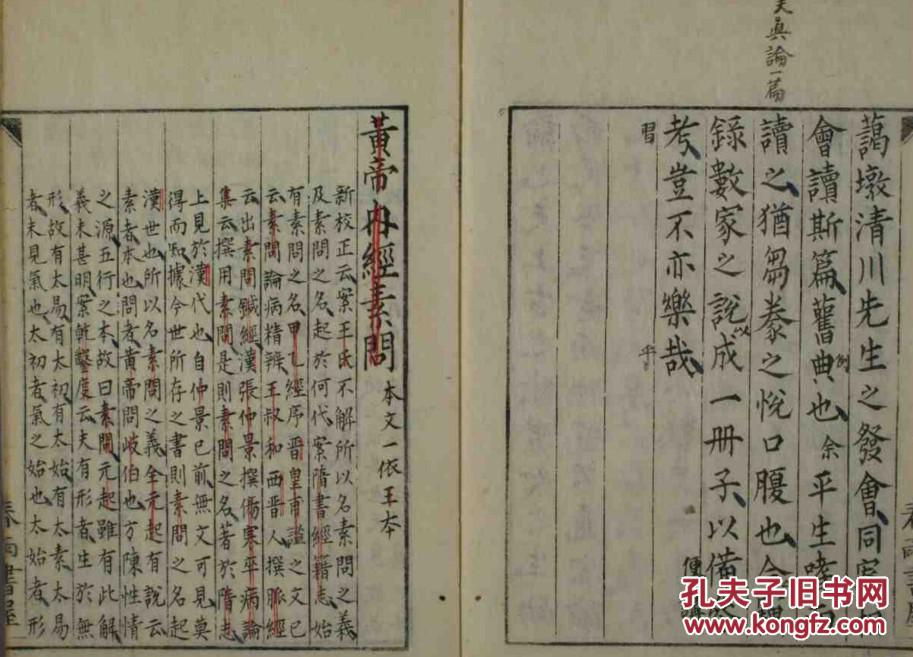 天真論一篇
藹墩清川先生之發會同
會讀斯篇舊典也余平生嗜
例
讀之猶芻豢之悅口腹也今
錄數家之說以成一冊子以備
便
考豈不亦樂哉
乎
習
春雨書屋
黃帝內經素問 本文一依王本
新校正云案王氏不解所以名素問之義
及素問之名起於何代案隋書經籍志始
有素問之名甲乙經序晉皇甫謐之文已
云素問論病精辨王叔和西晉人撰脈經
云出素問鍼經漢張仲景撰傷寒卒病論
集云撰用素問是則素問之名著於隋志
上見於漢代也自仲景已前無文可見莫
得而知據今世所存之書則素問之名起
漢世也所以名素問之義全元起有說云
素者本也問者黃帝問岐伯也方陳性情
之源五行之本故曰素問元起雖有此解
義未甚明案乾鑿度云夫有形者生於無
形故有太易有太初有太始有太素太易
者未見氣也太初者氣之始也太始者形
春雨書屋
孔夫子旧书网
www.kongfz.com